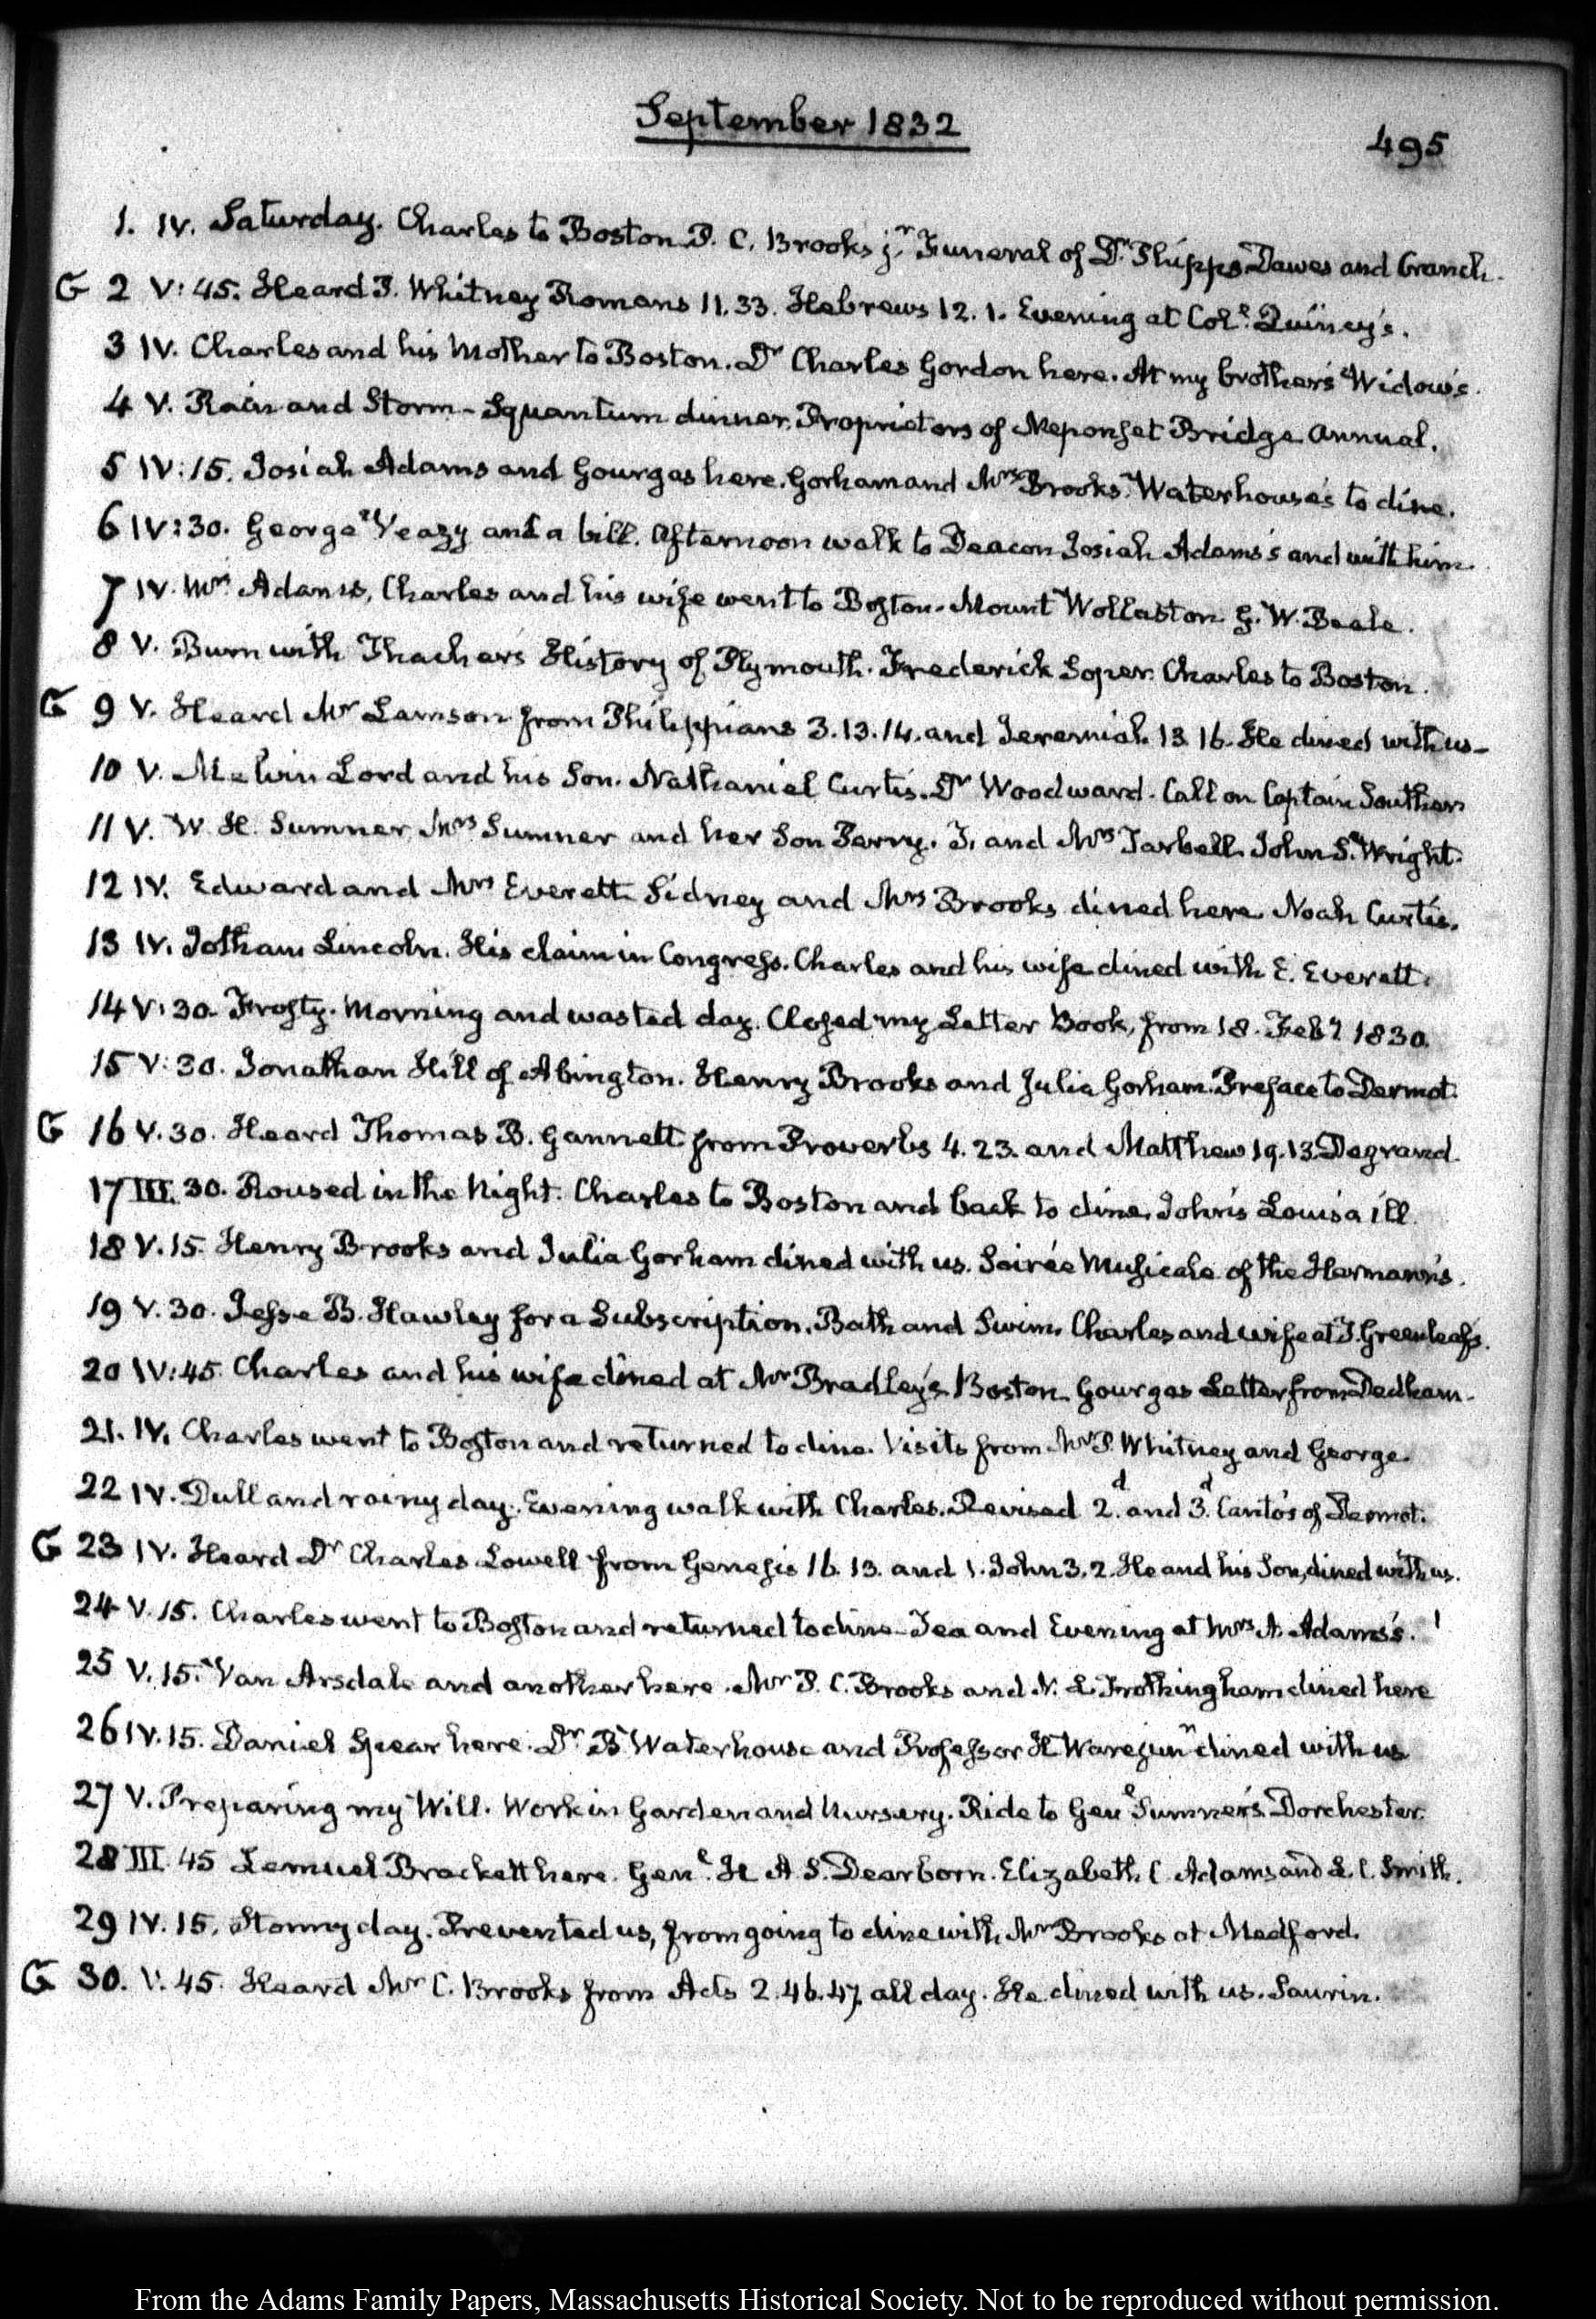 September 1832
495
1. IV. Saturday. Charles to Boston P. C. Brooks jr. Funeral of Dr. Phipps Dawes and Cranch.
G 2 V:45. Heard P. Whitney Romans 11.33. Hebrews 12.1. Evening at Col. Quincy's.
3 IV. Charles and his Mother to Boston. Dr Charles Gordon here. At my brother's Widow's.
4 V. Rain and Storm - Squantum dinner. Proprietors of Neponset Bridge annual.
5 IV:15. Josiah Adams and Gourgas here. Gorham and Mrs Brooks. Waterhouse's to dine.
6 IV:30. George Veazy and a bill. Afternoon walk to Deacon Josiah Adams's and with him.
7 IV. Mrs Adams, Charles and his wife went to Boston. Mount Wollaston G. W. Beale.
8 V. Burn with Thacher's History of Plymouth. Frederick Soper. Charles to Boston.
G 9 V. Heard Mr Lamson from Philippians 3.13.14. and Jeremiah 13.16. He dined with us-
10 V. Melvin Lord and his Son. Nathaniel Curtis. Dr Woodward. Call on Captain Souther
11 V. W. H. Sumner, Mrs Sumner and her Son Perry. T. and Mrs Tarbell John S. Wright.
12 IV. Edward and Mrs Everett Sidney and Mrs Brooks dined here Noah Curtis.
13 IV. Jotham Lincoln. His claim in Congress. Charles and his wife dined with E. Everett.
14 V:30. Frosty. Morning and wasted day. Closed my Letter Book, from 18. Feby 1830.
15 V:30. Jonathan Hill of Abington. Henry Brooks and Julia Gorham. Preface to Dermot.
G 16 V.30. Heard Thomas B. Gannett from Proverbs 4.23. and Matthew 19.13. Degrand.
17 III.30. Roused in the Night. Charles to Boston and back to dine. John's Louisa ill.
18 V.15. Henry Brooks and Julia Gorham dined with us. Soirée Musicale of the Hermann's.
19 V.30. Jesse B. Hawley for a Subscription. Bath and Swim. Charles and wife at T. Greenleaf's.
20 IV:45. Charles and his wife dined at Mr Bradley's Boston Gourgas Letter from Dedham.
21. IV. Charles went to Boston and returned to dine. Visits from Mr P. Whitney and George.
22 IV. Dull and rainy day. Evening walk with Charles. Revised 2d. and 3d. Canto's of Dermot.
G 23 IV. Heard Dr Charles Lowell from Genesis 16.13. and 1. John 3.2. He and his Son, dined with us.
24 V.15. Charles went to Boston and returned to dine - Tea and Evening at Mrs A. Adams's.
25 V.15. Van Arsdale and another here. Mr P. C. Brooks and N. L. Frothingham dined here
26 IV.15. Daniel Spear here. Dr B Waterhouse and Professor H Ware junr dined with us
27 V. Preparing my Will. Work in Garden and Nursery. Ride to Genl Sumner's Dorchester.
28 III.45 Lemuel Brackett here. Genl. H A S. Dearborn. Elizabeth C Adams and L. C. Smith.
29 IV.15. Stormy day. Prevented us, from going to dine with Mr Brooks at Medford.
G 30. V.45. Heard Mr C. Brooks from Acts 2.46.47 all day. He dined with us. Saurin.
From the Adams Family Papers, Massachusetts Historical Society. Not to be reproduced without permission.